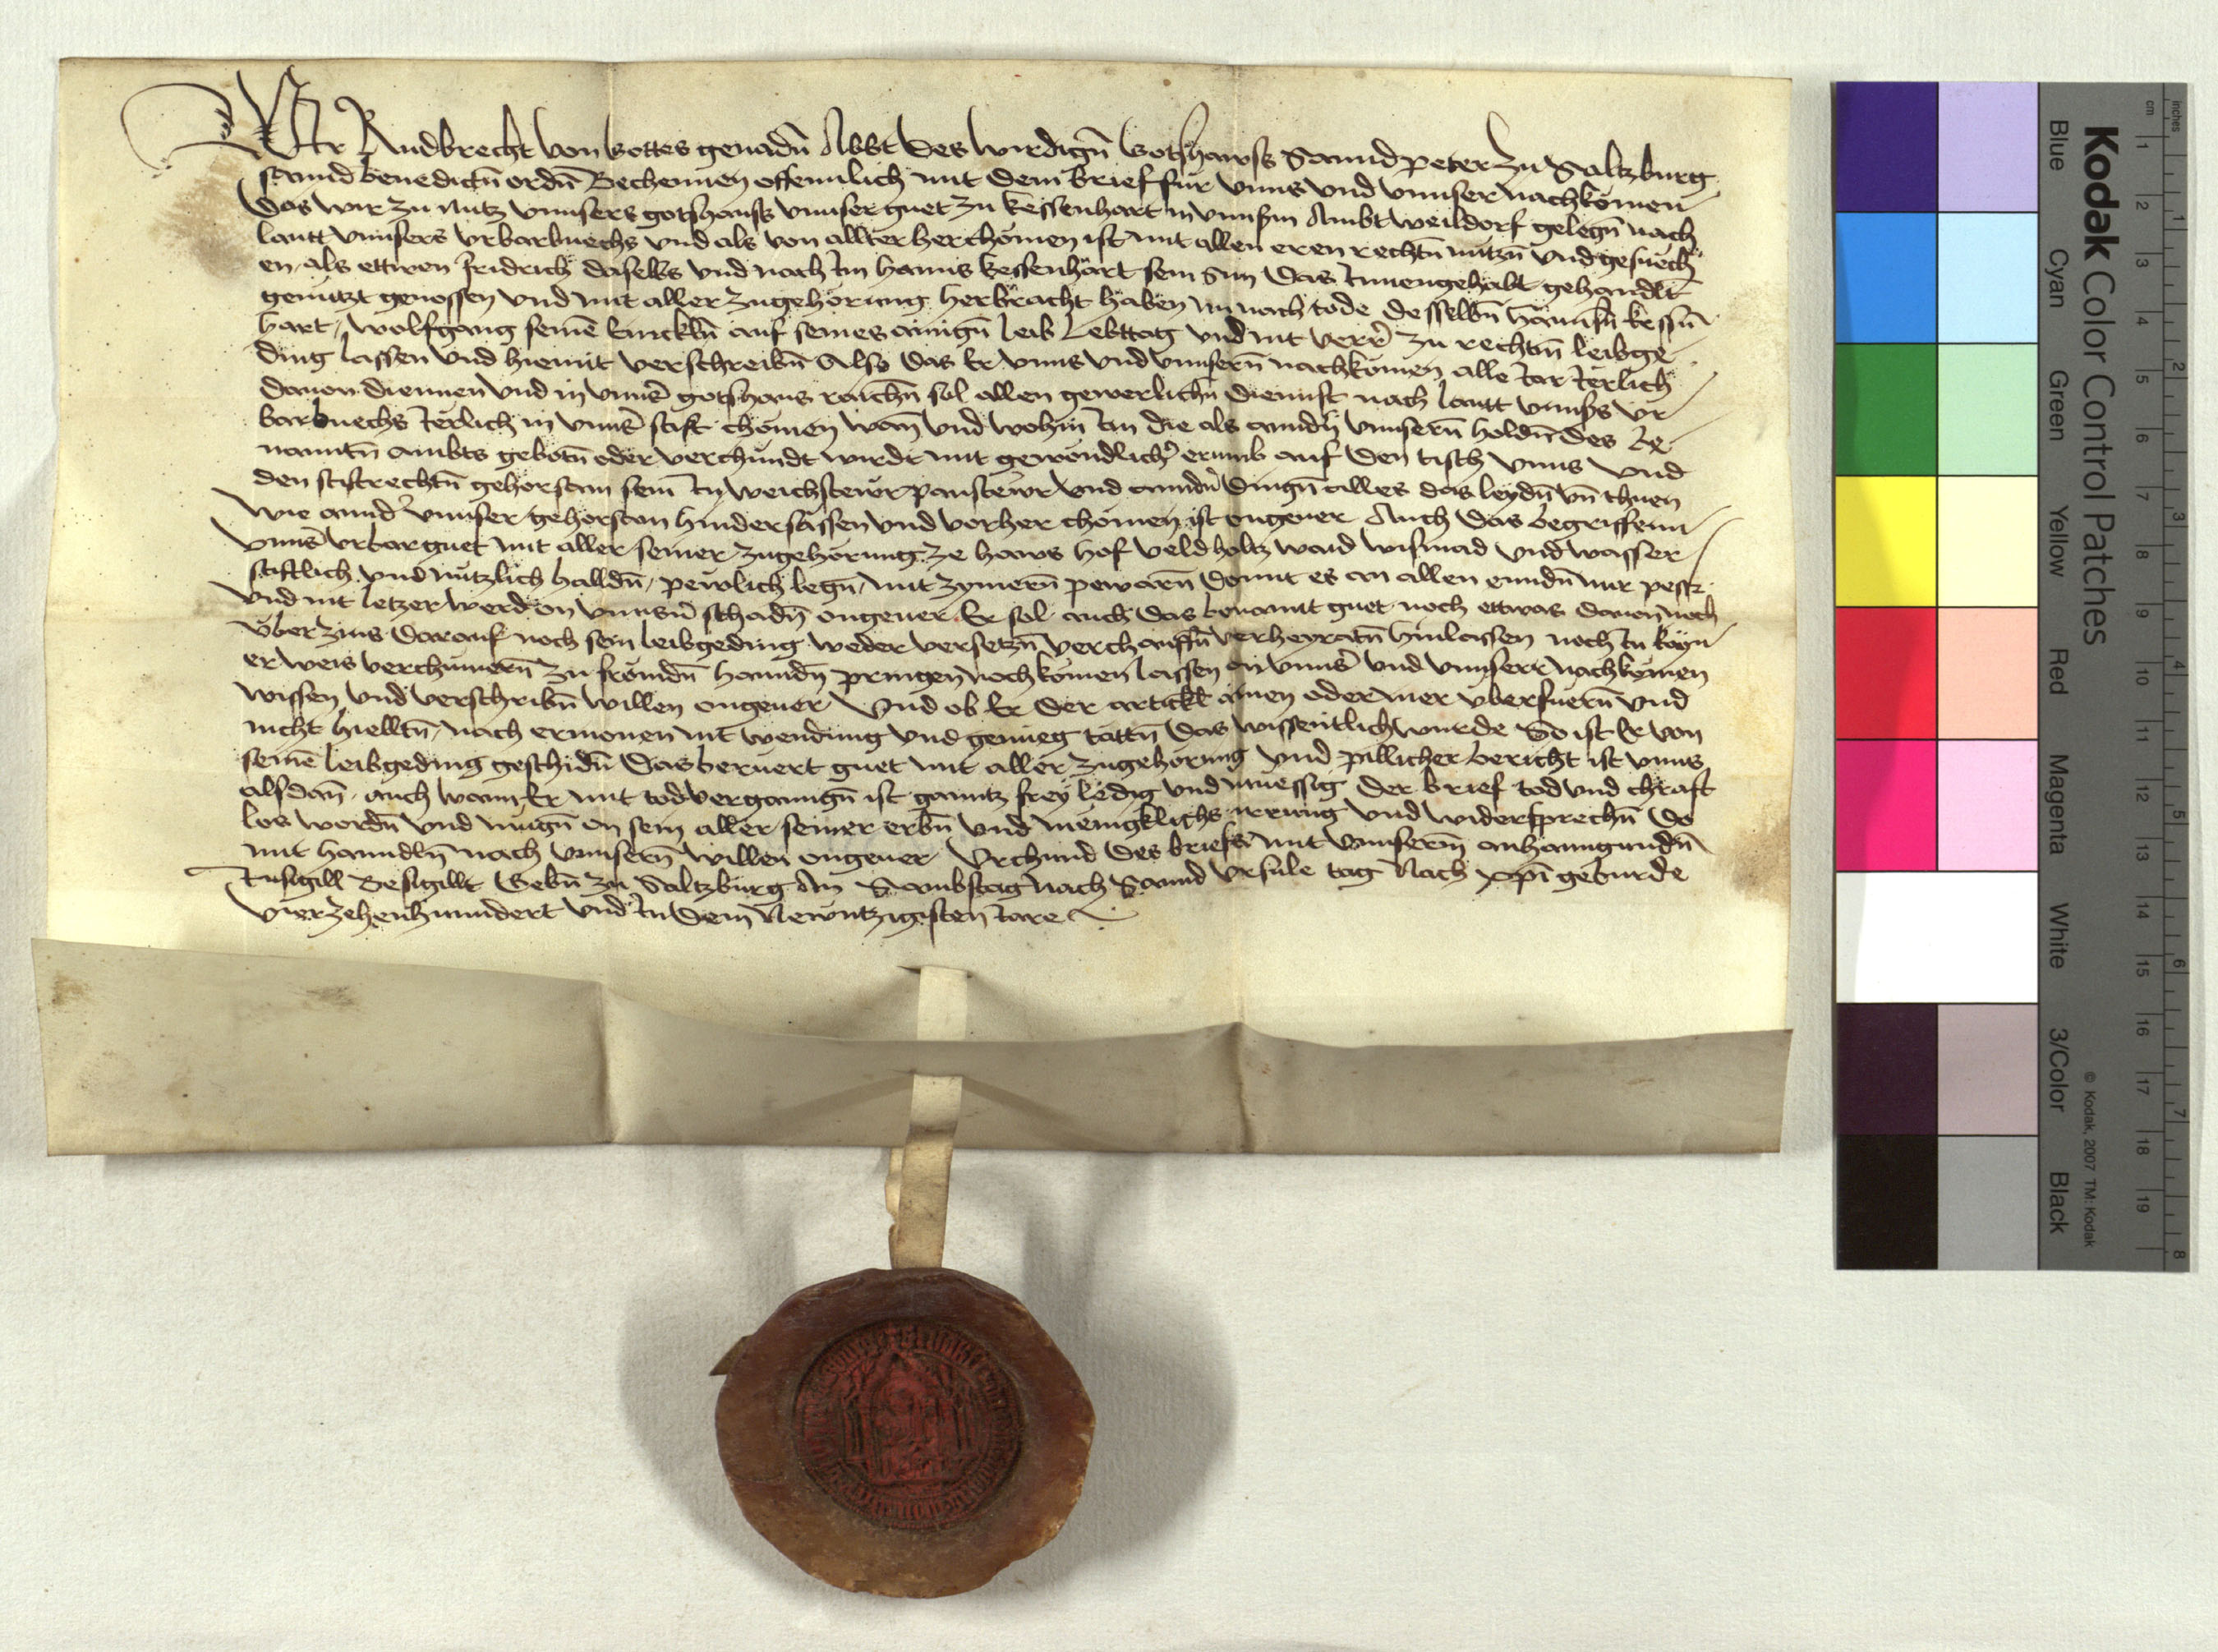 Wir Rudbrecht von gottes genadn̄ Abbt des wirdign̄ gotshawss Sannd Peter zu Saltzburg
sannd benedictn̄ ordn̄ Bechennen offennlich mit dem brief für vnns vnd vnnser nachkömen
das wir zu nutz vnnsers gotshauss vnnser guet zu kessenhart in vnnsm̄ Ambt weildorf gelegn̄ nach
lautt vnnsers vrbarbuechs vnd als von allter herchömen ist mit allen eren rechtn̄ nutzn̄ vnd gesuech
en als ettwen fridrich daselbs vnd nach im hanns kessenhart sein sun das innengehabt gehandlt
genützt genossen vnd mit aller zugehörung herbracht haben nu nach tode desselbn̄ hannsn̄ kessn̄
hart, wolfgang seinē Encklñ auf seines ainign̄ leib lebttag vnd nit verr̄ zu rechtn̄ leibge
ding lassen vnd hiemit verschreibn̄ Also das Er vnns vnd vnnsern̄ nachkömen alle iar ierlich
dauon diennen vnd in vnnser̄ gotshaus raichn̄ sol allen gewerlichn̄ diennst nach lautt vnnsers vr
barbuechs ierlich in vnnser̄ stift chömen wan̄ vnd wohin im die als anndn̄ vnnsern̄ holdn̄ des be
nanntn̄ ambts gebotn̄ oder verchundt wirdt mit gewondlicher̄ erunb auf den tisch vnns vnd
den stiftrechtn̄ gehorsam sein in weichstewr panstewr vnd anndn̄ dingn̄ alles das leydn̄ vn̄ thuen
wie annder̄ vnnser gehorsam hindersässen vnd vorher chömen ist ongeuer Auch das begriffenn
vnnser̄ vrbarguet mit aller seiner zugehörung ze haws hof veld holtz waid wismad vnd wasser
stiftlich vnd nützlich halldn̄, pewlich legn̄, mit zymern̄ pewarn̄ damit es an allen enndn̄ nur pesser
vnd nit letzer werd on vnnsn̄ schadn̄ ongeuer Er sol auch das benannt guet noch ettwas dauon noch
vberzins darauf noch sein leibgeding weder versetzn̄ verchauffn̄ verheyratn̄ hinlassen noch in kayn
er weis verchümern̄ zu frömdn̄ hanndn̄ pringen noch kömen lassen on vnnser̄ vnd vnnserr nachkömen
wissen vnd verschribn̄ willen ongeuer Vnd ob Er der artickl ainen oder mer vberfuern̄ vnd
nicht hielltn̄, nach ermonen nit wendung vnd genueg tättn̄ das wissentlich wurde So ist Er von
seinē leibgeding geschidn̄ das beruert guet mit aller zugehörung vnd pillicher bericht ist vnns
alsdan̄, auch wann Er mit tod vergangn̄ ist ganntz frey ledig vnd muessig der brief tod vnd chraft
los wordn̄ vnd mugn̄ on sein aller seiner erbn̄ vnd menigklichs irrung vnd widersprechn̄ da
mit hanndln̄ nach vnnsern̄ willen ongeuer Vrchund des briefs mit vnnserm̄ anhanngundn̄
Insigill besigillt Gebn̄ zu Saltzburg An Sambstag nach Sannd Vrsule tag Nach xp̄i geburde
vierzehenhundert vnd in dem Newntzigisten iare
Kodak Color Control Patches
Blue Cyan Green Yellow Red Magenta White 3/Color Black
© Kodak, 2007 TM: Kodak
inches
cm
1 2 3 4 5 6 7 8 9 10 11 12 13 14 15 16 17 18 19
1 2 3 4 5 6 7 8